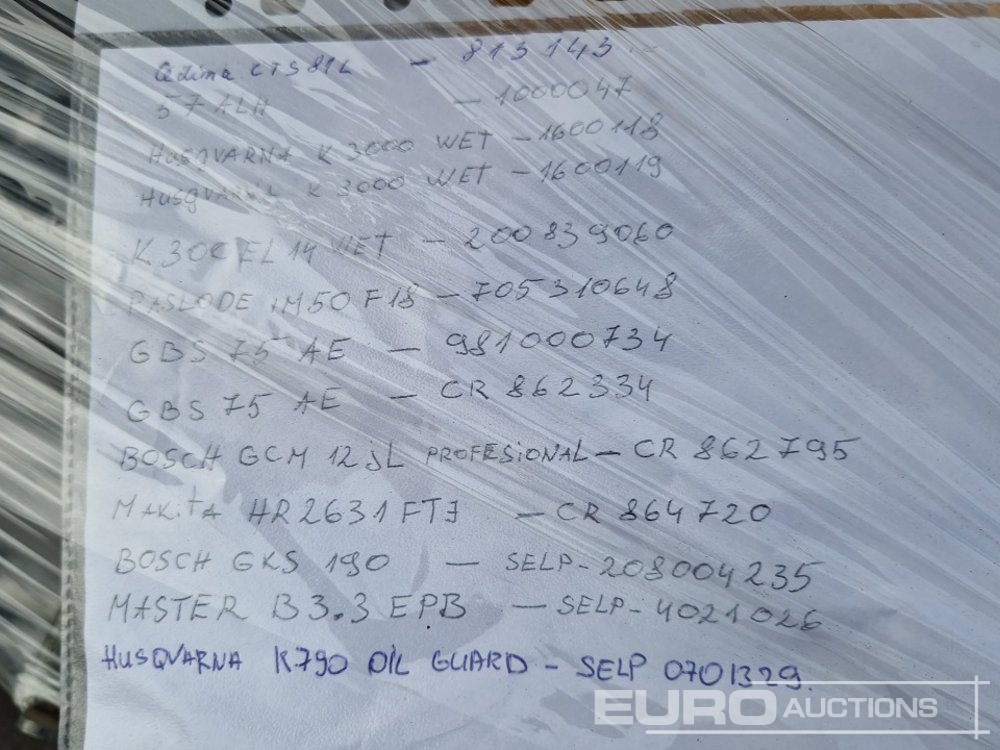 CTS 81L - 813143
57 ALH - 1000047
HUSQVARNA K 3000 WET - 1600118
HUSQVARNA K 3000 WET - 1600119
K 3000 EL 14 WET - 200839060
PASLODE iM50 F18 - 705310648
GBS 75 AE - 981000734
GBS 75 AE - CR 862334
BOSCH GCM 12 JL PROFESIONAL - CR 862795
MAKiTA HR2631FTJ - CR 864720
BOSCH GKS 190 - SELP-208004235
MASTER B3.3 EPB - SELP-4021026
HUSQVARNA K790 OIL GUARD - SELP 0701329.
EURO AUCTIONS